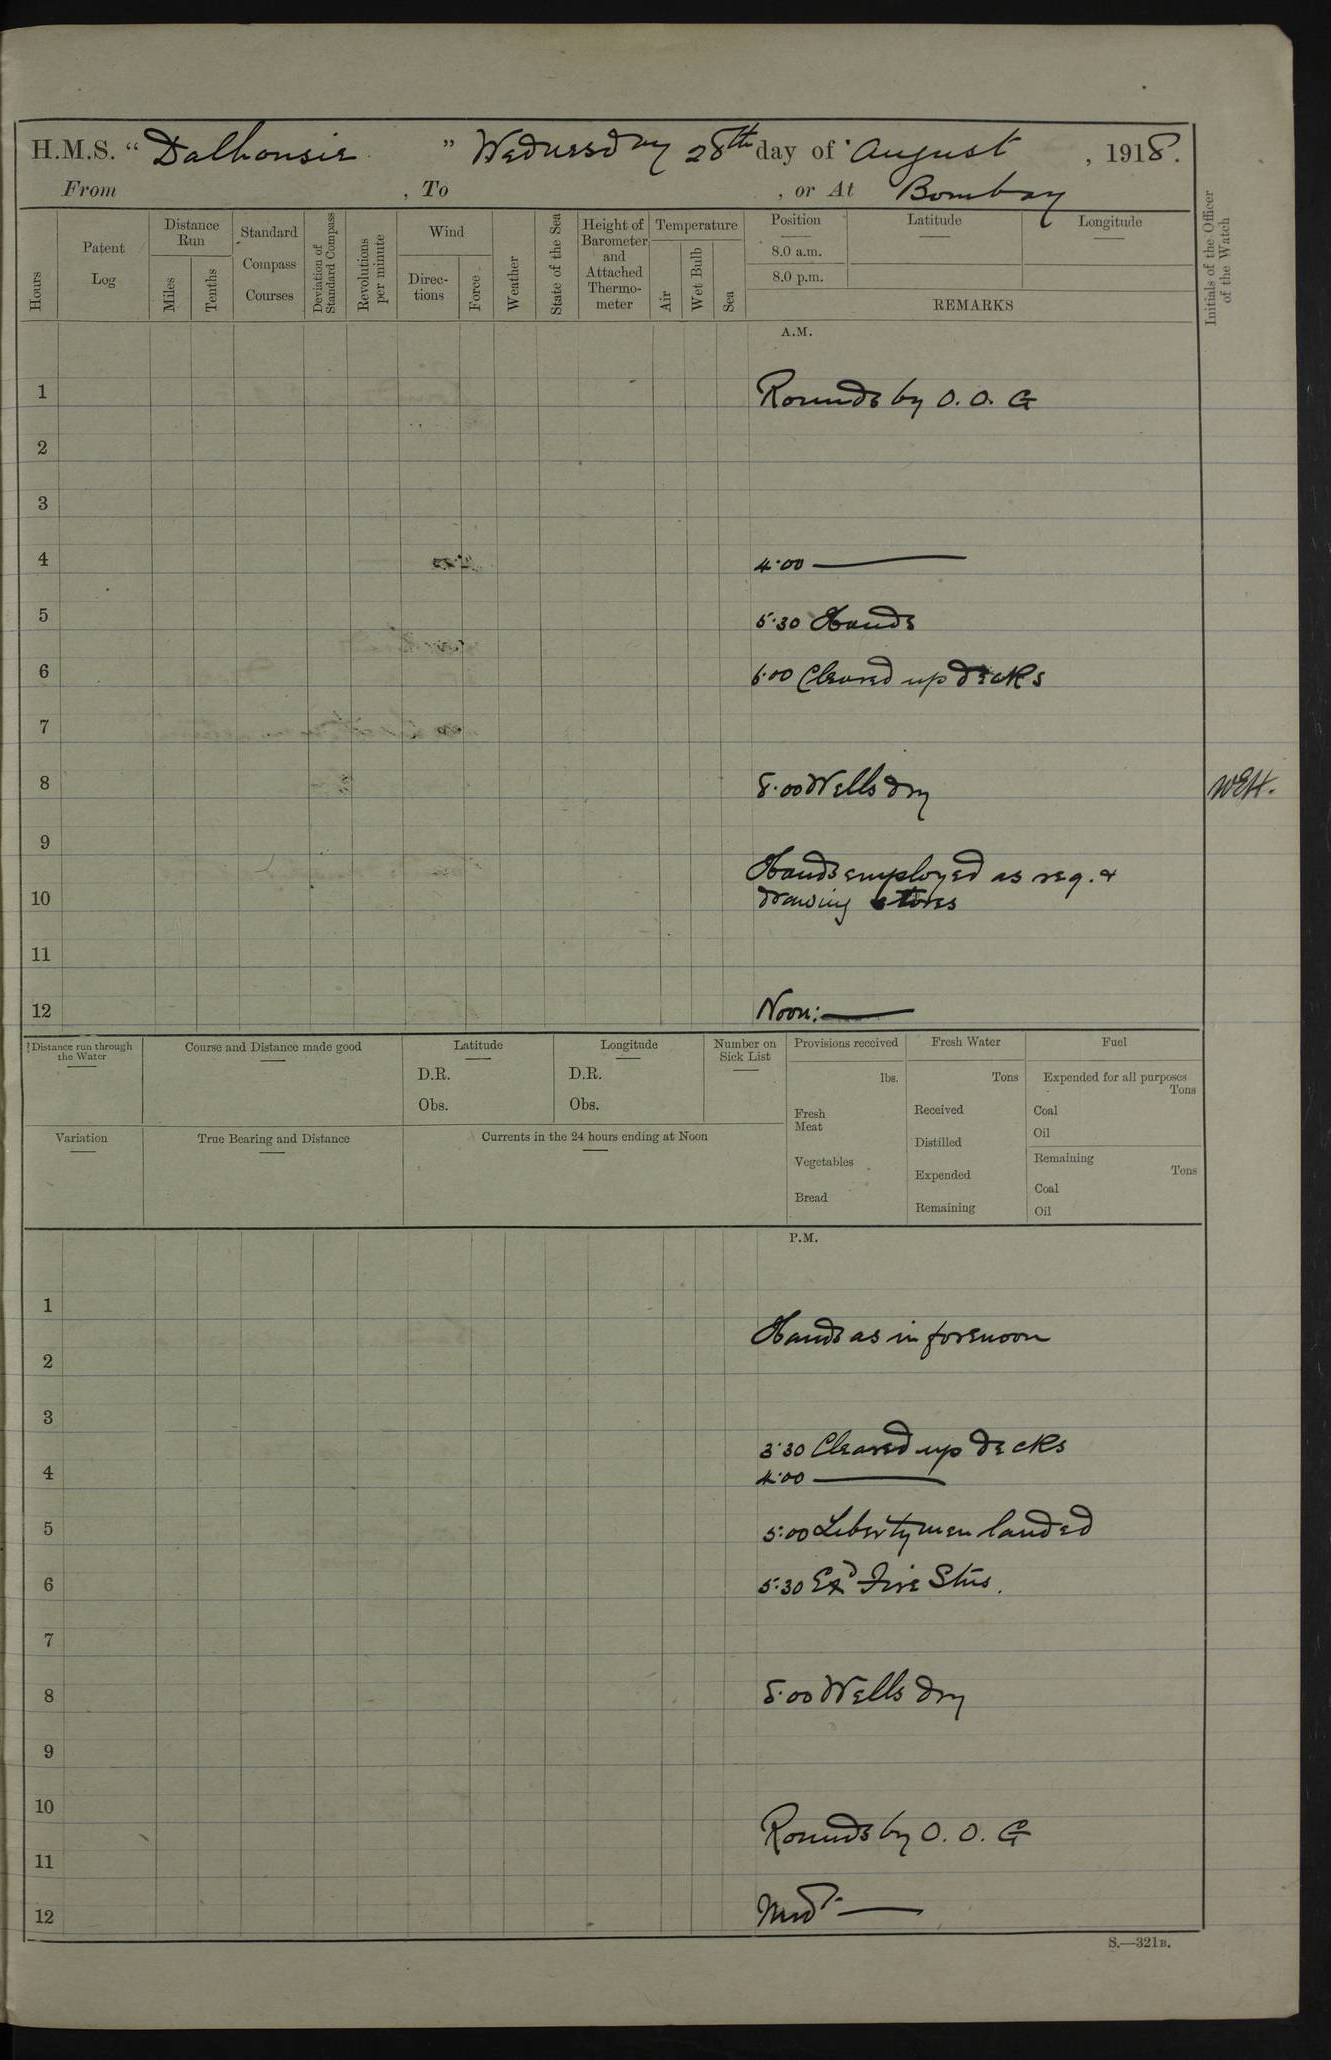 H.M.S. “ Dalhousie ” Wednesday 28th day of August , 1918.
From , To , or At Bombay
Hours
Patent Log
Distance Run
Miles
Tenths
Standard Compass Courses
Deviation of Standard Compass
Revolutions per minute
Wind
Directions
Force
Weather
State of the Sea
Height of Barometer and Attached Thermometer
Temperature
Air
Wet Bulb
Sea
Position
8.0 a.m.
8.0 p.m.
Latitude
Longitude
REMARKS
Initials of the Officer of the Watch
A.M.
1 Rounds by O. O. G
2
3
4 4.00 ———
5 5.30 Hands
6 6.00 Cleared up decks
7
8 8.00 Wells dry WEH.
9
Hands employed as req. +
10 drawing stores
11
12 Noon: ———
Distance run through the Water
Course and Distance made good
Latitude
D.R.
Obs.
Longitude
D.R.
Obs.
Number on Sick List
Provisions received
lbs.
Fresh Meat
Vegetables
Bread
Fresh Water
Tons
Received
Distilled
Expended
Remaining
Fuel
Expended for all purposes
Tons
Coal
Oil
Remaining
Tons
Coal
Oil
Variation
True Bearing and Distance
Currents in the 24 hours ending at Noon
P.M.
1
Hands as in forenoon
2
3
3.30 Cleared up decks
4 4.00 ———
5 5.00 Liberty men landed
6 5.30 Exd Fire Stns.
7
8 8.00 Wells dry
9
10
Rounds by O. O. G
11
12 Midt ———
S.—321B.